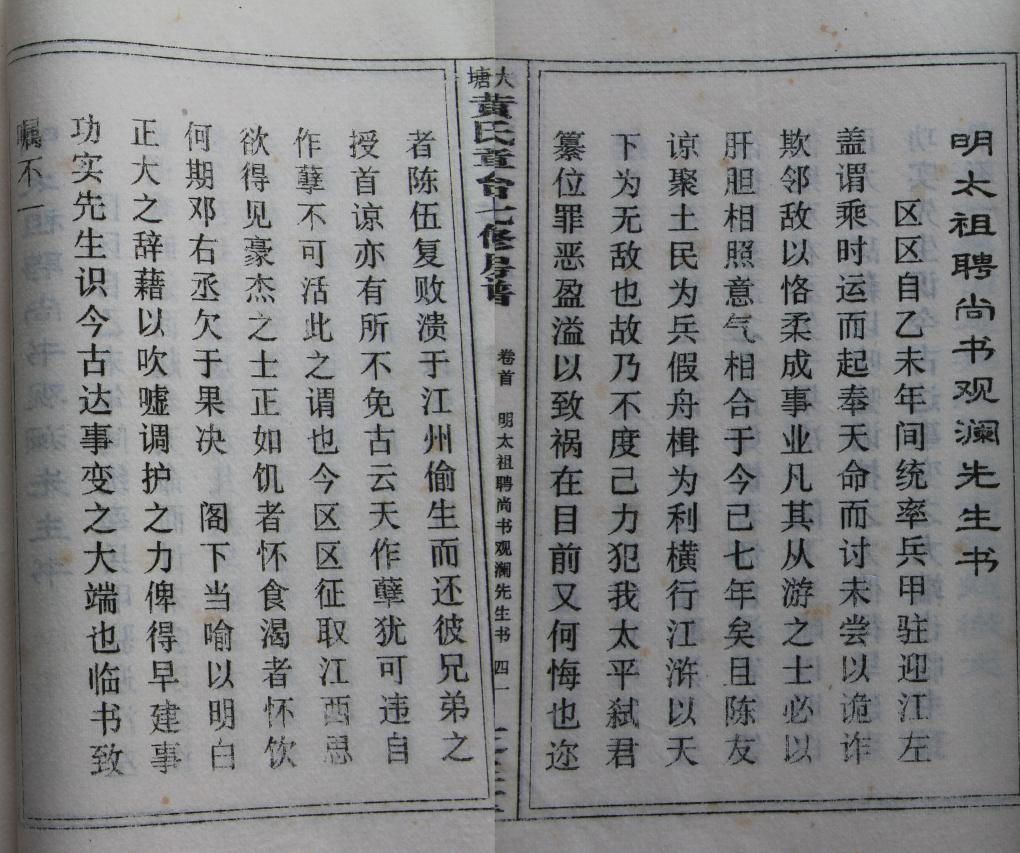 明太祖聘尚书观澜先生书
区区自乙未年间统率兵甲驻迎江左
盖谓乘时运而起奉天命而讨未尝以诡诈
欺邻敌以恪柔成事业凡其从游之士必以
肝胆相照意气相合于今己七年矣且陈友
谅聚土民为兵假舟楫为利横行江浒以天
下为无敌也故乃不度己力犯我太平弑君
纂位罪恶盈溢以致祸在目前又何悔也迩
大塘
黄氏章台七修房谱
卷首
明太祖聘尚书观澜先生书
四一
者陈伍复败溃于江州偷生而还彼兄弟之
授首谅亦有所不免古云天作孽犹可违自
作孽不可活此之谓也今区区征取江西思
欲得见豪杰之士正如饥者怀食渴者怀饮
何期邓右丞欠于果决 阁下当喻以明白
正大之辞藉以吹嘘调护之力俾得早建事
功实先生识今古达事变之大端也临书致
嘱不一